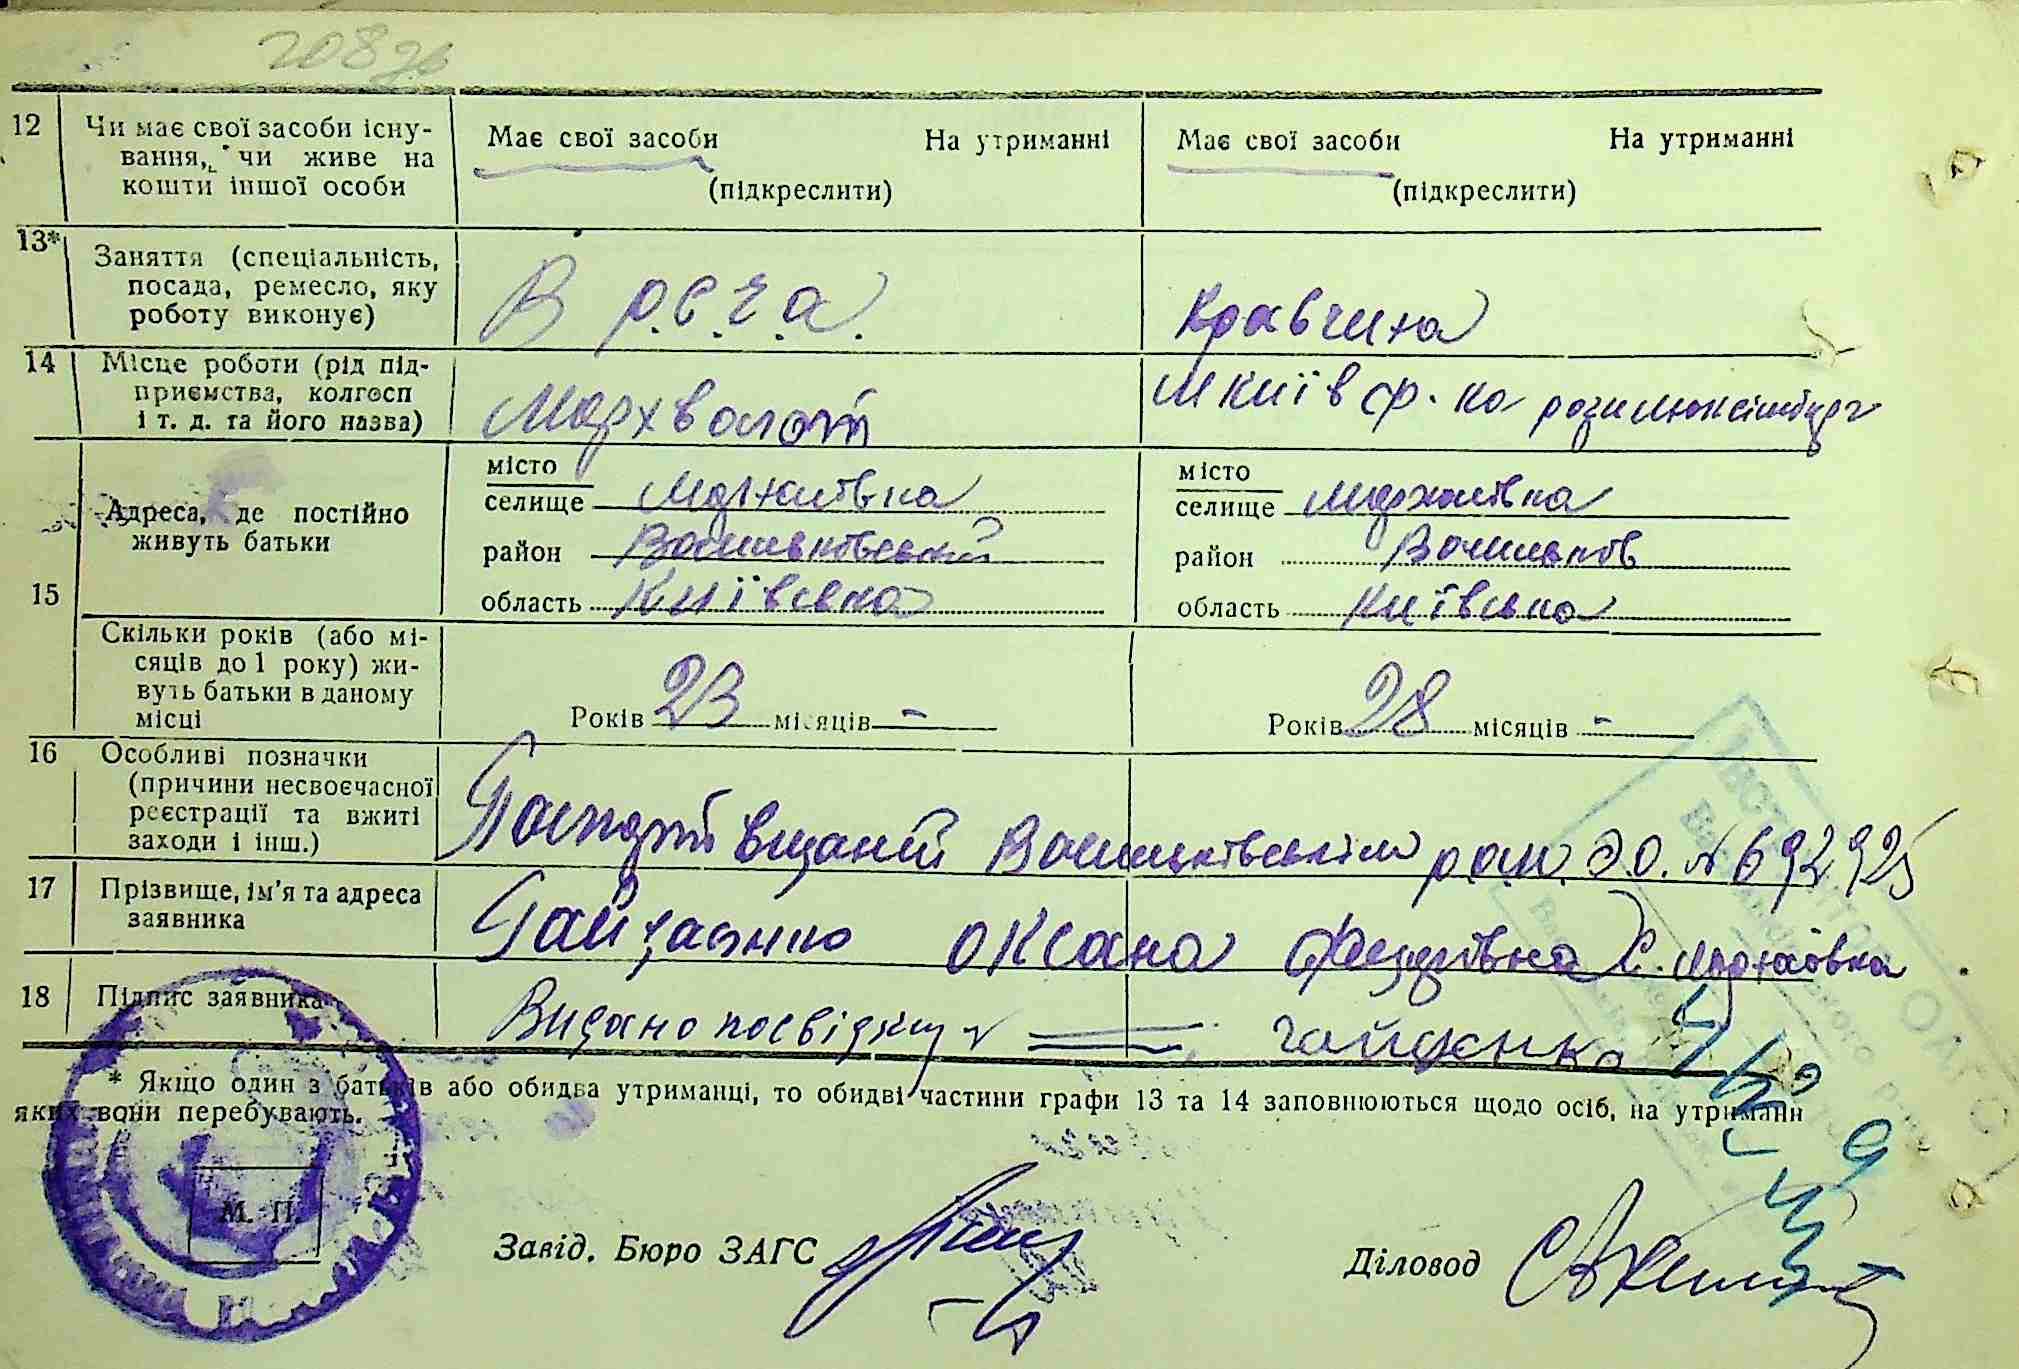 12 Чи має свої засоби існу-
вання, чи живе на
кошти іншої особи
Має свої засоби На утриманні
(підкреслити)
Має свої засоби На утриманні
(підкреслити)
13* Заняття (спеціальність,
посада, ремесло, яку
роботу виконує)
В р.с.ч.а.
Кравчиха
14 Місце роботи (рід під-
приємства, колгосп
і т. д. та його назва)
М Київ ф-ка рози люксімбург
15 Адреса, де постійно
живуть батьки
місто
селище Мархалівка
район Васильківський
область Київська
місто
селище Мархалівка
район Васильків
область Київська
Скільки років (або мі-
сяців до 1 року) жи-
вуть батьки в даному
місці
Років 23 місяців -
Років 28 місяців -
16 Особливі позначки
(причини несвоєчасної
реєстрації та вжиті
заходи і інш.)
Паспорт виданий Васильківським рай. в.о. № 692925
17 Прізвище, ім'я та адреса
заявника
Гайдаєнко Оксана Федорівна С. Мархалівка
18 Підпис заявника
Видано посвідку Гайдаєнко
* Якщо один з батьків або обидва утриманці, то обидві частини графи 13 та 14 заповнюються щодо осіб, на утриманні
яких вони перебувають.
М. П.
Завід. Бюро ЗАГС
Діловод